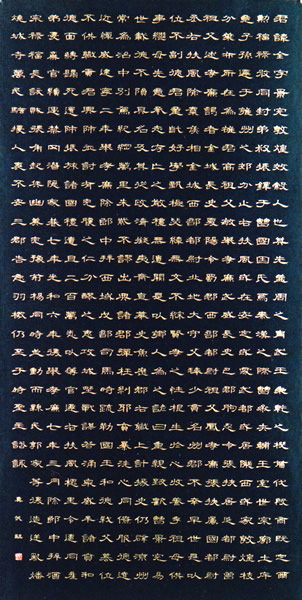 君諱全字景完敦煌效穀人也其先蓋周之冑武王秉乾之機翦伐殷商既定爾
勳福祿攸同封弟叔振鐸于曹國因氏焉秦漢之際曹參夾輔王室世宗廓土斥
竟子孫遷于雍州之郊分止右扶風或在安定或處武都或居隴西或家敦煌枝
分葉布所在為雄君高祖父敏舉孝廉武威長史巴郡朐忍令張掖居延都尉曾
祖父述孝廉謁者金城長史夏陽令蜀郡西部都尉祖父鳳孝廉張掖屬國都尉
丞右扶風隃麋侯相金城西部都尉北地太守父琫少貫名州郡不幸早世是以
位不副德君童齔好學甄極毖緯無文不綜賢孝之性根生於心收養季祖母供
事繼母先意承志存亡之敬禮無遺闕是以鄉人為之諺曰重親致歡曹景完易
世載德不隕其名及其從政清擬夷齊直慕史魚歷郡右職上計掾史仍辟涼州
常為治中別駕紀綱萬里朱紫不謬出典諸郡彈枉糾邪貪暴洗心同僚服德遠
近憚威建寧二年舉孝廉除郎中拜西域戊部司馬時疏勒國王和德弒父篡位
不供職貢君興師征討有吮膿之仁分醪之惠攻城野戰謀若涌泉威牟諸賁和
德面縛歸死還師振旅諸國禮遺且二百萬悉以簿官遷右扶風槐里令遭同產
弟憂棄官續遇禁网潛隱家巷七年光和六年復舉孝廉七年三月除郎中拜酒
泉祿福長訞賊張角起兵幽冀兗豫荊楊同時並動而縣民郭家等復造逆亂燔
燒城寺萬民騷擾人裹不安三郡告急羽檄仍至于時聖主諮諏